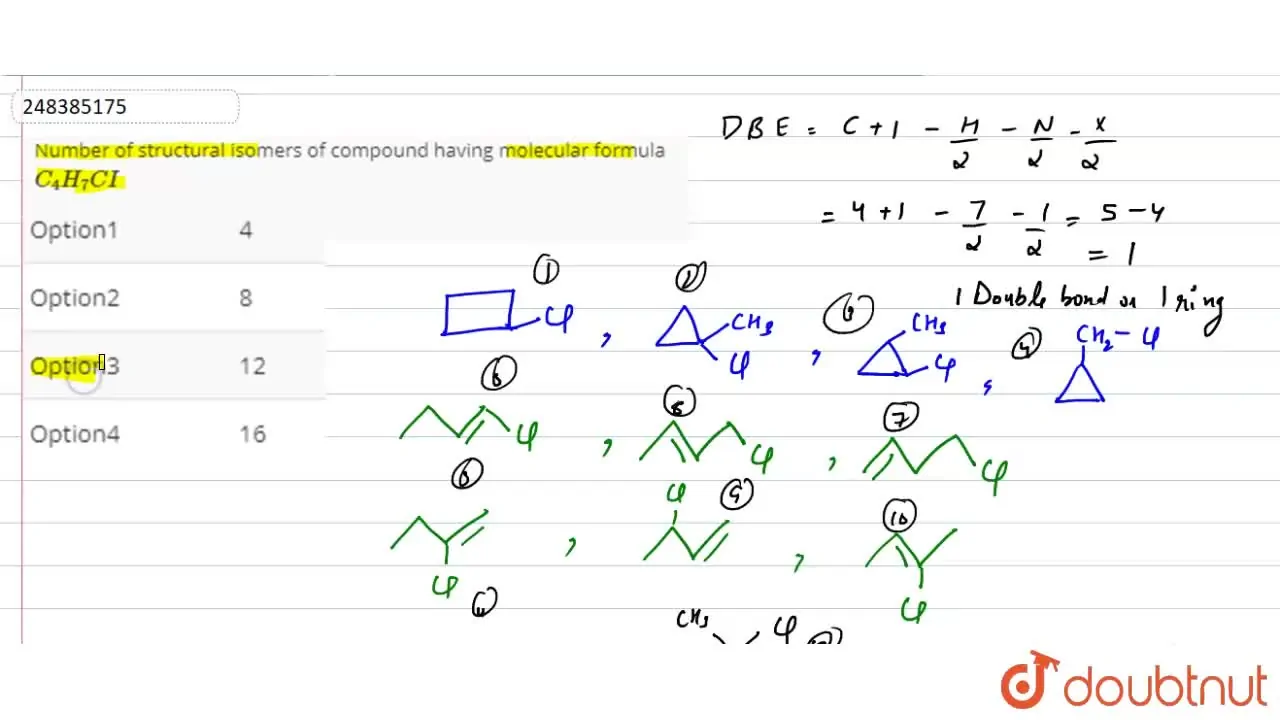 248385175
Number of structural isomers of compound having molecular formula
C₄H₇CI
Option1 4
Option2 8
Option3 12
Option4 16
DBE = C + 1 - H/2 - N/2 - X/2
= 4 + 1 - 7/2 - 1/2 = 5 - 4
= 1
1 Double bond or 1 ring
①
Cl ,
CH₃
Cl ,
CH₃
Cl ,
④
CH₂ - Cl
Cl ,
Cl ,
⑦
Cl
Cl ,
Cl
⑨
,
⑩
Cl
CH₃
Cl
doubtnut